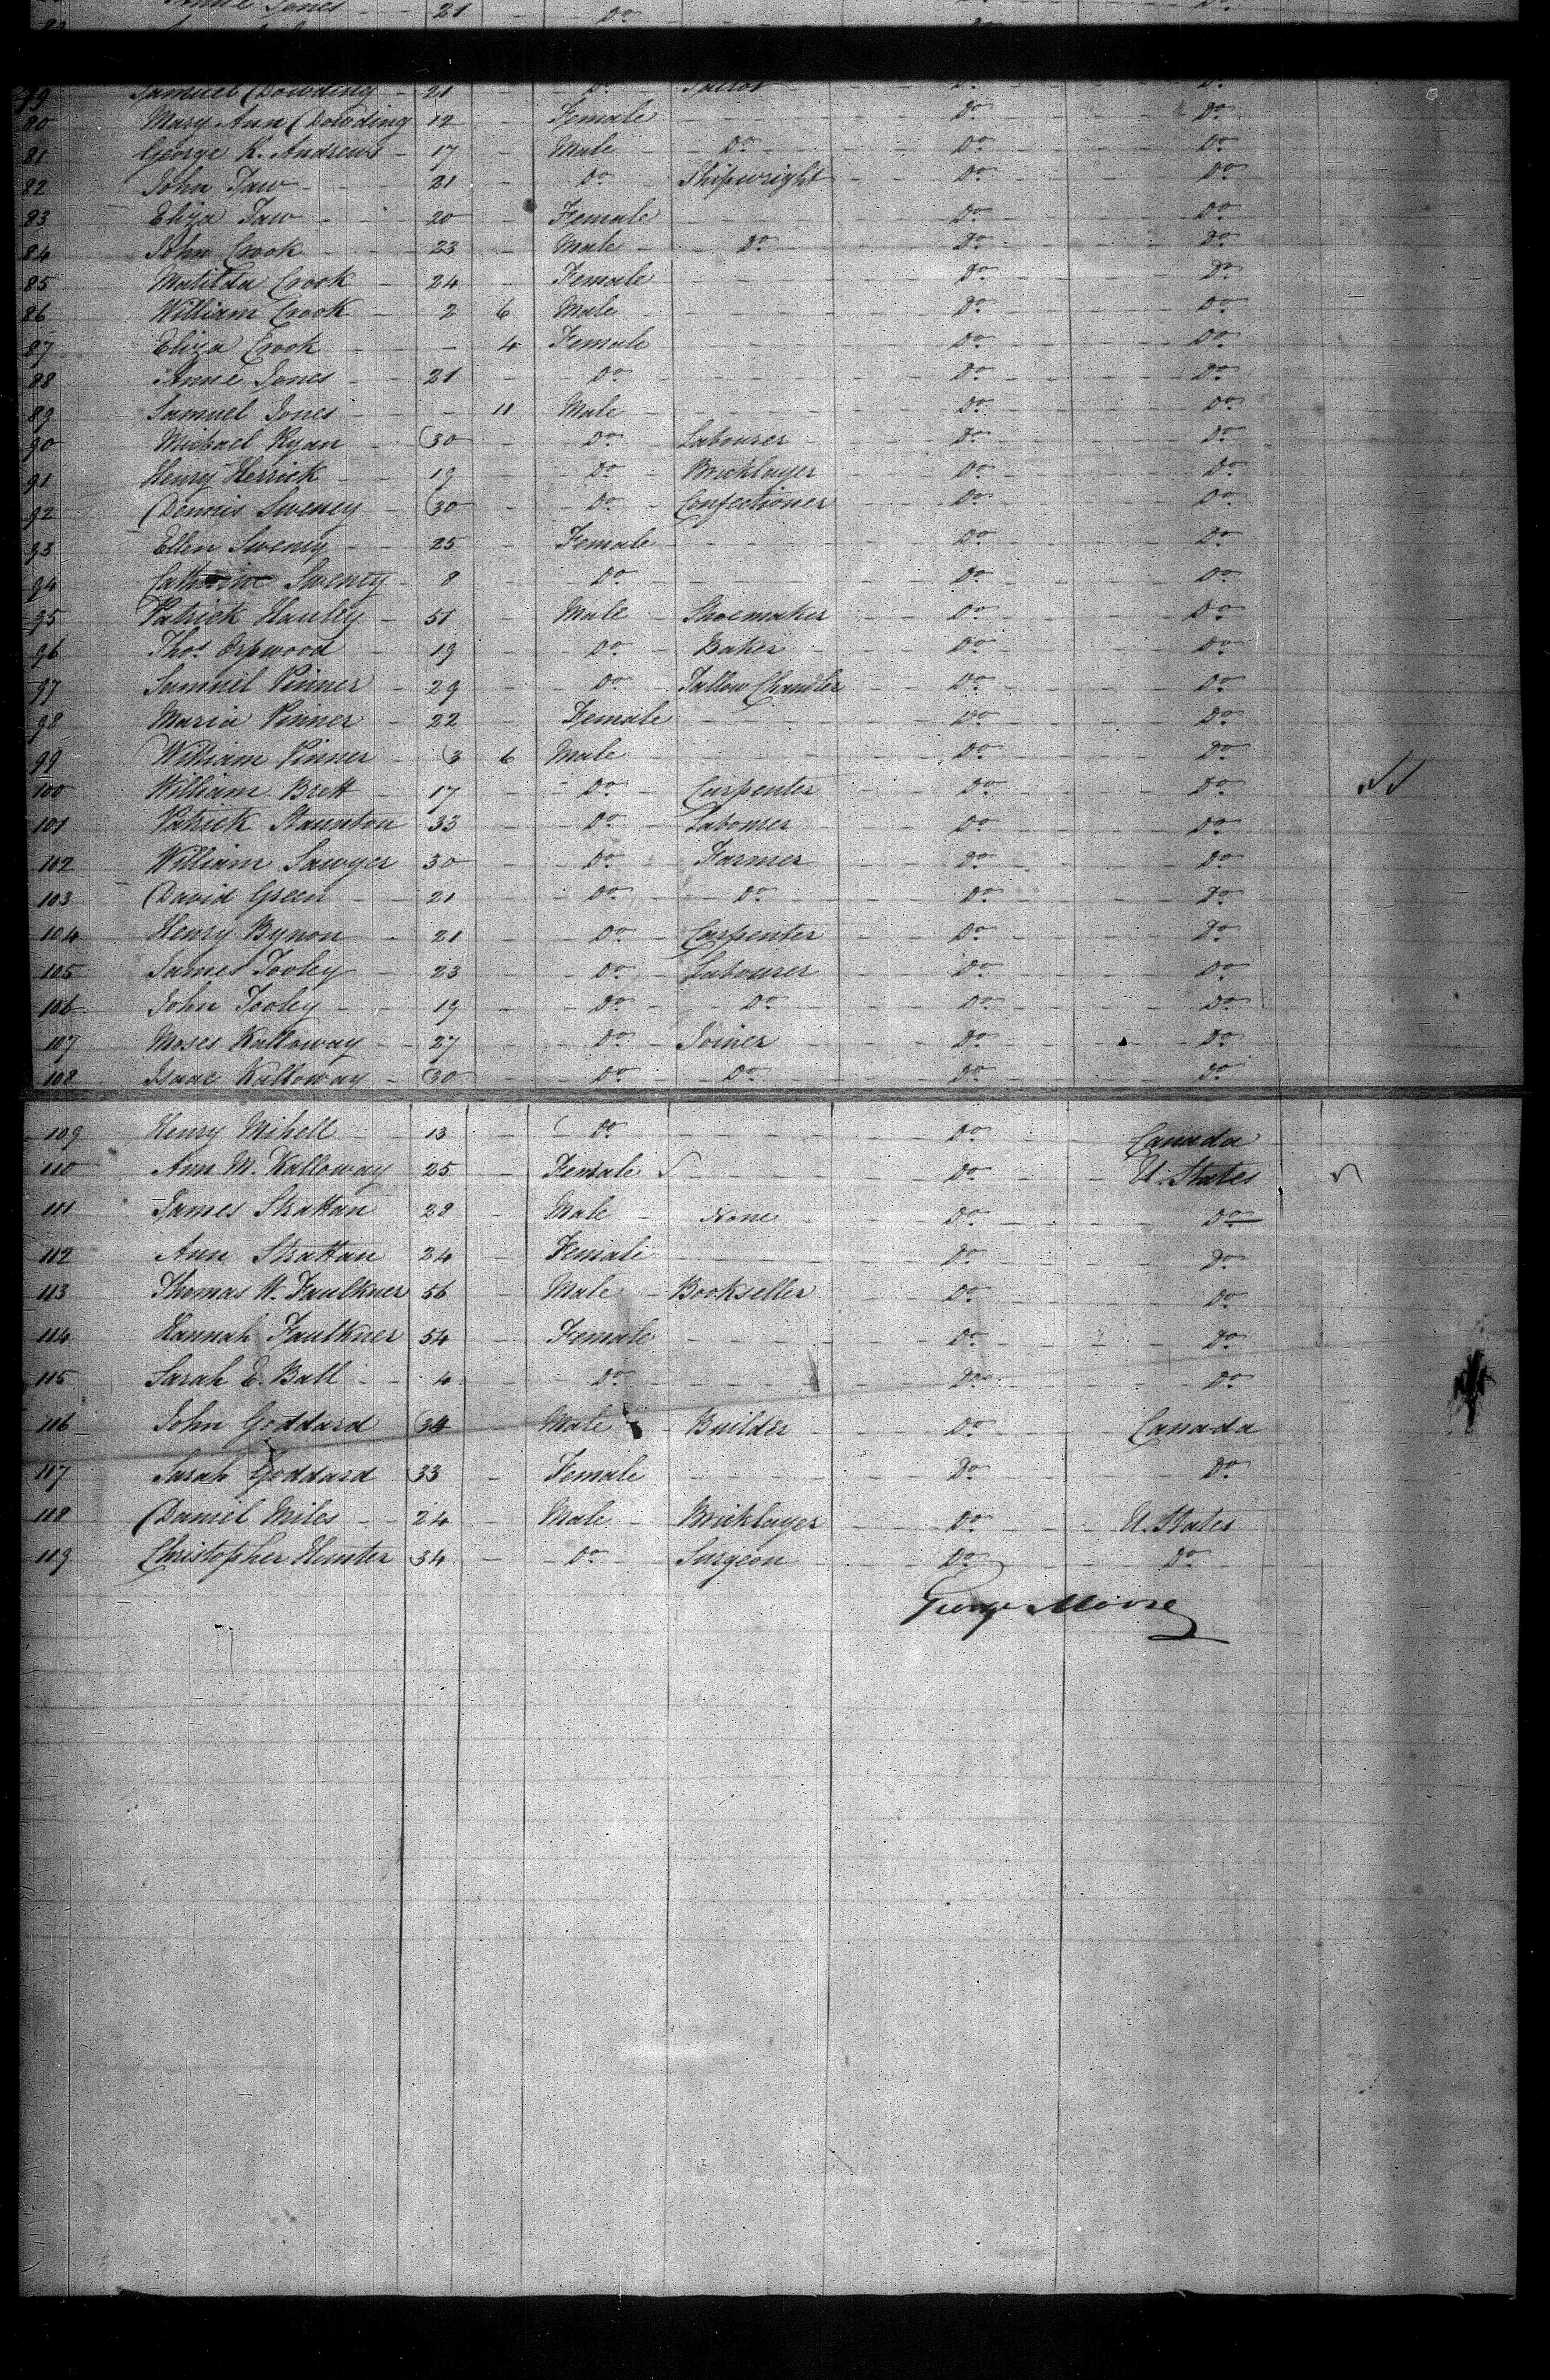 Jones 21 Do
79 Samuel Dowding 21 Do Do Do
80 Mary Ann Dowding 12 Female Do Do
81 George K. Andrews 17 Male Do Do Do
82 John Taw 21 Do Shipwright Do Do
83 Eliza Taw 20 Female Do Do
84 John Crook 23 Male Do Do Do
85 Matilda Crook 24 Female Do Do
86 William Crook 2 6 Male Do Do
87 Eliza Crook 4 Female Do Do
88 Anne Jones 21 Do Do Do
89 Samuel Jones 11 Male Do Do
90 Michael Ryan 30 Do Labourer Do Do
91 Henry Herrick 19 Do Bricklayer Do Do
92 Dennis Sweney 30 Do Confectioner Do Do
93 Ellen Sweney 25 Female Do Do
94 Catherine Sweney 8 Do Do Do
95 Patrick Hauley 51 Male Shoemaker Do Do
96 Thos. Orpwood 19 Do Baker Do Do
97 Samuel Pinner 29 Do Tallow Chandler Do Do
98 Maria Pinner 22 Female Do Do
99 William Pinner 3 6 Male Do Do
100 William Brett 17 Do Carpenter Do Do
101 Patrick Staunton 33 Do Labourer Do Do
102 William Sawyer 30 Do Farmer Do Do
103 David Green 21 Do Do Do Do
104 Henry Bynon 21 Do Carpenter Do Do
105 James Tooley 23 Do Labourer Do Do
106 John Tooley 19 Do Do Do Do
107 Moses Kalloway 27 Do Joiner Do Do
108 Isaac Kalloway 30 Do Do Do Do
109 Henry Mihell 13 Do Do Canada
110 Ann M. Kalloway 25 Female Do U. States
111 James Strattan 28 Male None Do Do
112 Ann Strattan 24 Female Do Do
113 Thomas W. Faulkner 56 Male Bookseller Do Do
114 Hannah Faulkner 54 Female Do Do
115 Sarah E. Ball 4 Do Do Do
116 John Goddard 34 Male Builder Do Canada
117 Sarah Goddard 33 Female Do Do
118 Daniel Miles 24 Male Bricklayer Do U. States
119 Christopher Hunter 34 Do Surgeon Do Do
George Moore